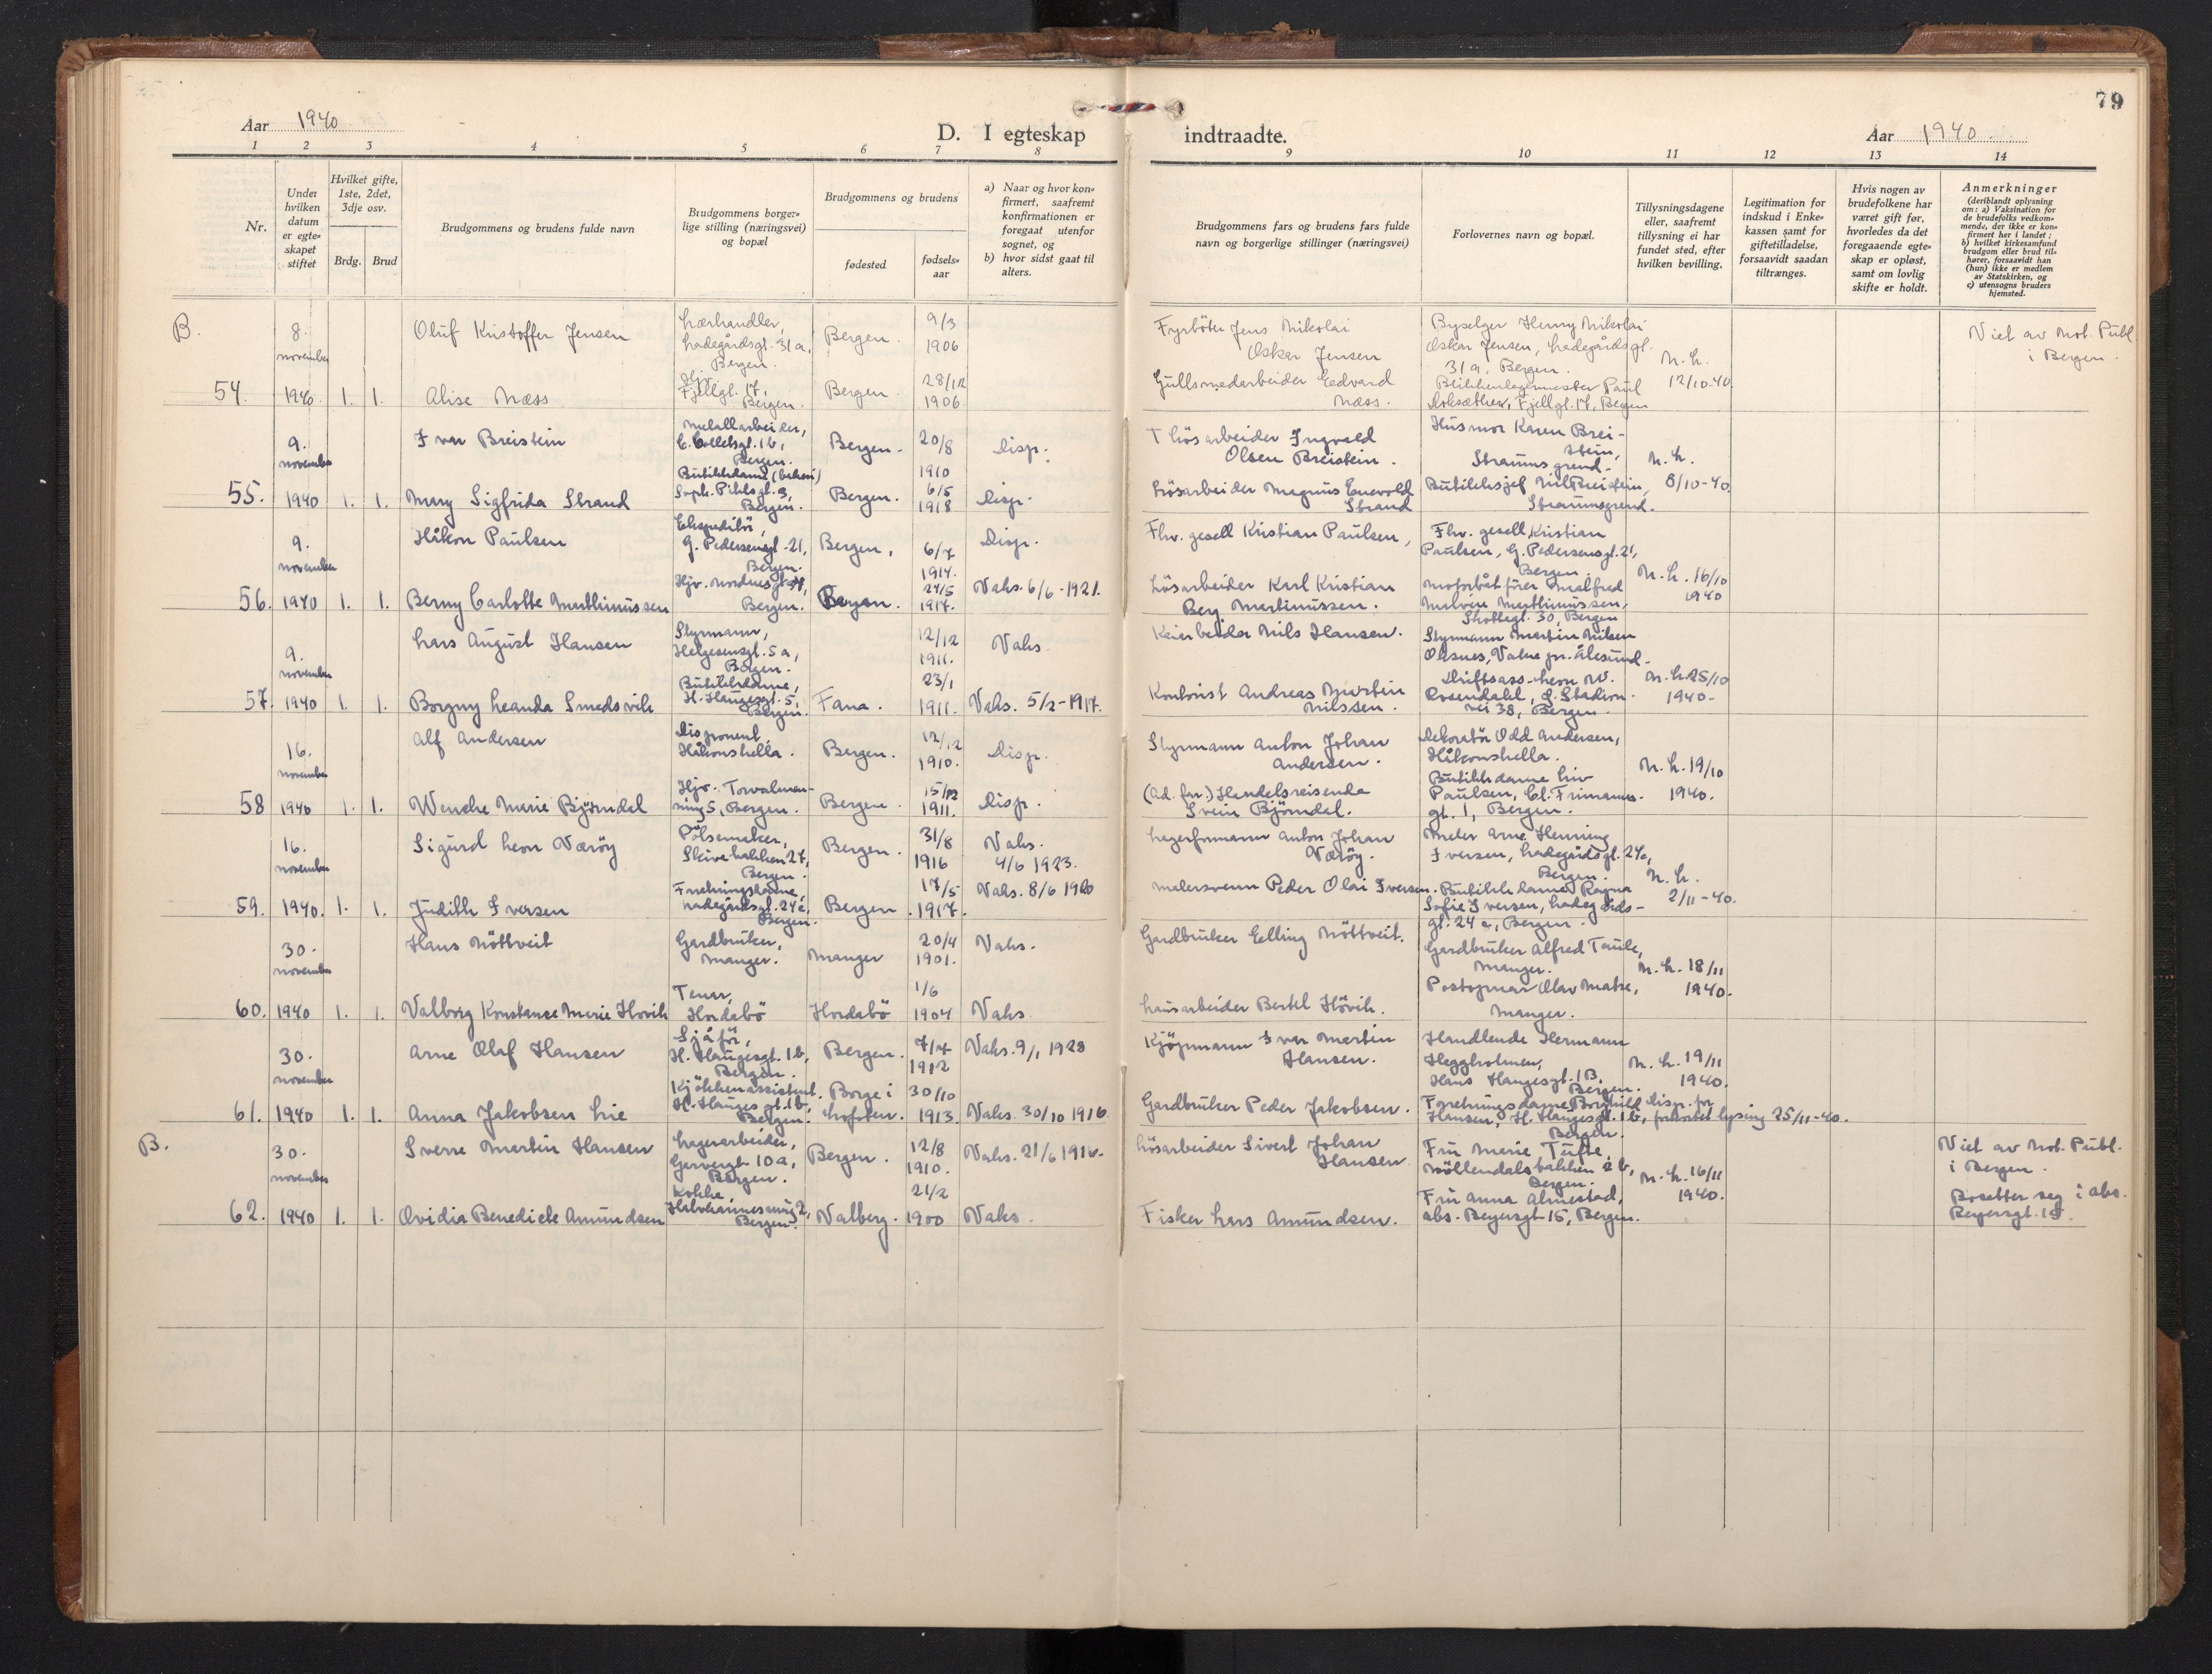 79
Aar 1940
D. I egteskap indtraadte.
Aar 1940
1 2 3 4 5 6 7 8 9 10 11 12 13 14
Nr.
Under hvilken datum er egte-skapet stiftet
Hvilket gifte, 1ste, 2det, 3dje osv.
Brdg. Brud
Brudgommens og brudens fulde navn
Brudgommens borger-lige stilling (næringsvei) og bopæl
Brudgommens og brudens
fødested
fødsels-aar
a) Naar og hvor kon-firmert, saafremt konfirmationen er foregaat utenfor sognet, og
b) hvor sidst gaat til alters.
Brudgommens fars og brudens fars fulde navn og borgerlige stillinger (næringsvei)
Forlovernes navn og bopæl.
Tillysningsdagene eller, saafremt tillysning ei har fundet sted, efter hvilken bevilling.
Legitimation for indskud i Enke-kassen samt for giftetilladelse, forsaavidt saadan tiltrænges.
Hvis nogen av brudefolkene har været gift før, hvorledes da det foregaaende egte-skap er opløst, samt om lovlig skifte er holdt.
Anmerkninger (deriblandt oplysning om: a) Vaksination for de brudefolks vedkom-mende, der ikke er kon-firmert her i landet; b) hvilket kirkesamfund brudgom eller brud til-hører, forsaavidt han (hun) ikke er medlem av Statskirken, og c) utensogns bruders hjemsted.
B.
8. november
Oluf Kristoffer Jensen
Lærhandler, Ladegårdsgt. 31a, Bergen.
Bergen.
9/3 1906
Fyrböter Jens Nikolai Oskar Jensen
Byselger Henny Nikolai Oskar Jensen, Ladegårdsgt. 31a, Bergen.
N. h. 12/10-40.
Viet av Not. Publ. i Bergen.
54. 1940 1. 1.
Alise Næss
Hjv. Fjellgt. 17, Bergen.
Bergen.
28/12 1906.
Gullsmedarbeider Edvard Næss.
Blikkenslagermester Paul Fjellgt. 17, Bergen
9. november
Ivar Breistein
Metallarbeider, C. Colletsgt. 1b, Bergen.
Bergen.
20/8 1910
Disp.
Lösarbeider Ingvald Olsen Breistein.
Husmor Karen Breistein, Straumsgrend.
N. h. 8/10-40.
55. 1940 1. 1.
Mary Sigfrida Strand
Butikkdame (bakeri) Soph. Pihlsgt. 9, Bergen.
Bergen.
6/5 1918
Disp.
Lösarbeider Magnus Enevold Strand
Butikksjef Nils Breistein, Straumsgrend.
9. november
Håkon Paulsen
Ekspeditör, G. Pedersensgt. 21, Bergen.
Bergen.
6/7 1914.
Disp.
Fhv. gesell Kristian Paulsen,
Fhv. gesell Kristian Paulsen, G. Pedersensgt. 21, Bergen.
N. h. 16/10 1940
56. 1940 1. 1.
Berny Carlotte Marthinussen
Hjv. Nordnesgt. Bergen.
Bergen.
24/5 1917.
Vaks. 6/6-1921.
Lösarbeider Karl Kristian Berg Martinussen.
Motorbåtförer Malfred Marthinussen, Skottegt. 30, Bergen
9. november
Lars August Hansen
Styrmann, Helgesensgt. 5a, Bergen.
12/12 1911.
Vaks.
Keiarbeider Nils Hansen.
Styrmann Martin Nilsen Oksnes, Vatne pr. Ålesund.
N. h. 25/10 1940-
57. 1940 1. 1.
Borgny Leanda Smedsvik
Butikkdame, H. Haugesgt. 5, Bergen.
Fana.
23/1 1911.
Vaks. 5/2-1917.
Kontorist Andreas Martin Nilssen.
Driftsass. Leon W. Rosendahl, S. Stadionvei 38, Bergen.
16. november
Alf Andersen
Disponent, Håkonshella.
Bergen.
12/12 1910.
Disp.
Styrmann Anton Johan Andersen.
Dekoratör Odd Andersen, Håkonshella.
N. h. 19/10 1940.
58 1940 1. 1.
Wenche Marie Bjørndal
Hjv. Torvalmenning 5, Bergen.
Bergen.
15/12 1911.
Disp.
(Ad. far.) Handelsreisende Svein Bjørndal.
Butikkdame Liv Paulsen, Cl. Frimannsgt. 1, Bergen.
16. november
Sigurd Leon Værøy
Pölsemaker, Skivebakken 27, Bergen.
Bergen.
31/8 1916
Vaks. 4/6 1923.
Lagerformann Anton Johan Værøy.
Maler Arne Henning Iversen, Ladegårdsgt. 24c, Bergen.
N. h. 2/11-40.
59. 1940. 1. 1.
Judith Iversen
Forretningsdame, Ladegårdsgt. 24c, Bergen.
Bergen.
17/5 1917.
Vaks. 8/6 1920
Malersvenn Peder Olai Iversen.
Butikkdame Ragna Sofie Iversen, Ladegårdsgt. 24c, Bergen.
30. november
Hans Nöttveit
Gardbruker, Manger.
Manger
20/4 1901.
Vaks.
Gardbruker Elling Nöttveit.
Gardbruker Alfred Taule, Manger.
N. h. 18/11 1940.
60. 1940 1. 1.
Valborg Konstanse Marie Hovik
Tenar, Hordabö
Hordabö
1/6 1904
Vaks.
Lausarbeider Bertel Hövik.
Postopnar Olav Matre, Manger.
30. november
Arne Olaf Hansen
Sjåför, H. Haugesgt. 1b, Bergen.
Bergen.
7/7 1912
Vaks. 9/1 1923
Kjöpmann Ivar Martin Hansen.
Handlende Hermann Heggholmen, Hans Haugesgt. 1B, Bergen.
N. h. 19/11 1940.
61. 1940 1. 1.
Anna Jakobsen Lie
Kjökkenassistent, H. Hauges gt. 1b, Bergen.
Borge i Lofoten.
30/10 1913.
Vaks. 30/10 1916
Gardbruker Peder Jakobsen.
Forretningsdame Borghild Hansen, H. Haugesgt. 1b, Bergen.
Disp. for forkortet lysing 25/11-40.
B.
30. november
Sverre Martin Hansen
Lagerarbeider, Garvergt. 10a, Bergen.
Bergen.
12/8 1910.
Vaks. 21/6 1916.
Lösarbeider Sivert Johan Hansen
Fru Marie Tufte, Möllendalsbakken 2b, Bergen.
N. h. 16/11 1940.
Viet av Not. Publ. i Bergen.
62. 1940 1. 1.
Ovidia Benedicte Amundsen
Kokke, Bergen.
Valberg.
21/2 1900
Vaks.
Fisker Lars Amundsen.
Fru Anna Almestad, abs. Beyersgt. 15, Bergen.
Bosetter seg i abs. Beyersgt. 15.